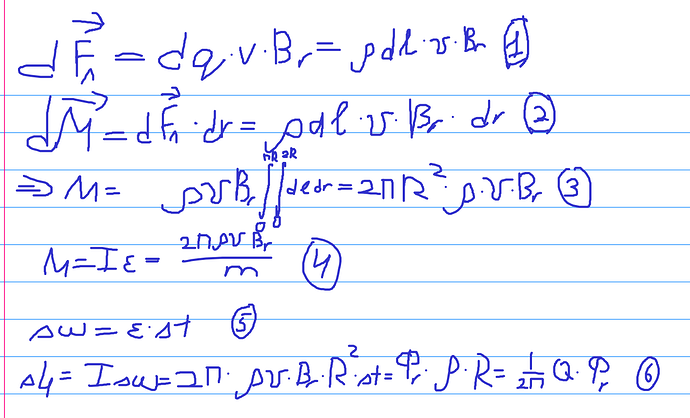 dF⃗ₙ = dq·v·Bᵣ = ρdl·v·Bᵣ ①
dM⃗ = dF⃗ₙ·dr = ρdl·v·Bᵣ·dr ②
⇒ M = ρvBᵣ ∫₀^{πR} ∫₀^{2R} dedr = 2πR²·ρ·v·Bᵣ ③
M = Iε = 2πρvBᵣ / m ④
Δω = ε·Δt ⑤
ΔL = IΔω = 2π·ρv·Bᵣ·R²Δt = Φᵣ·ρ·R = 1/2π Q·Φᵣ ⑥